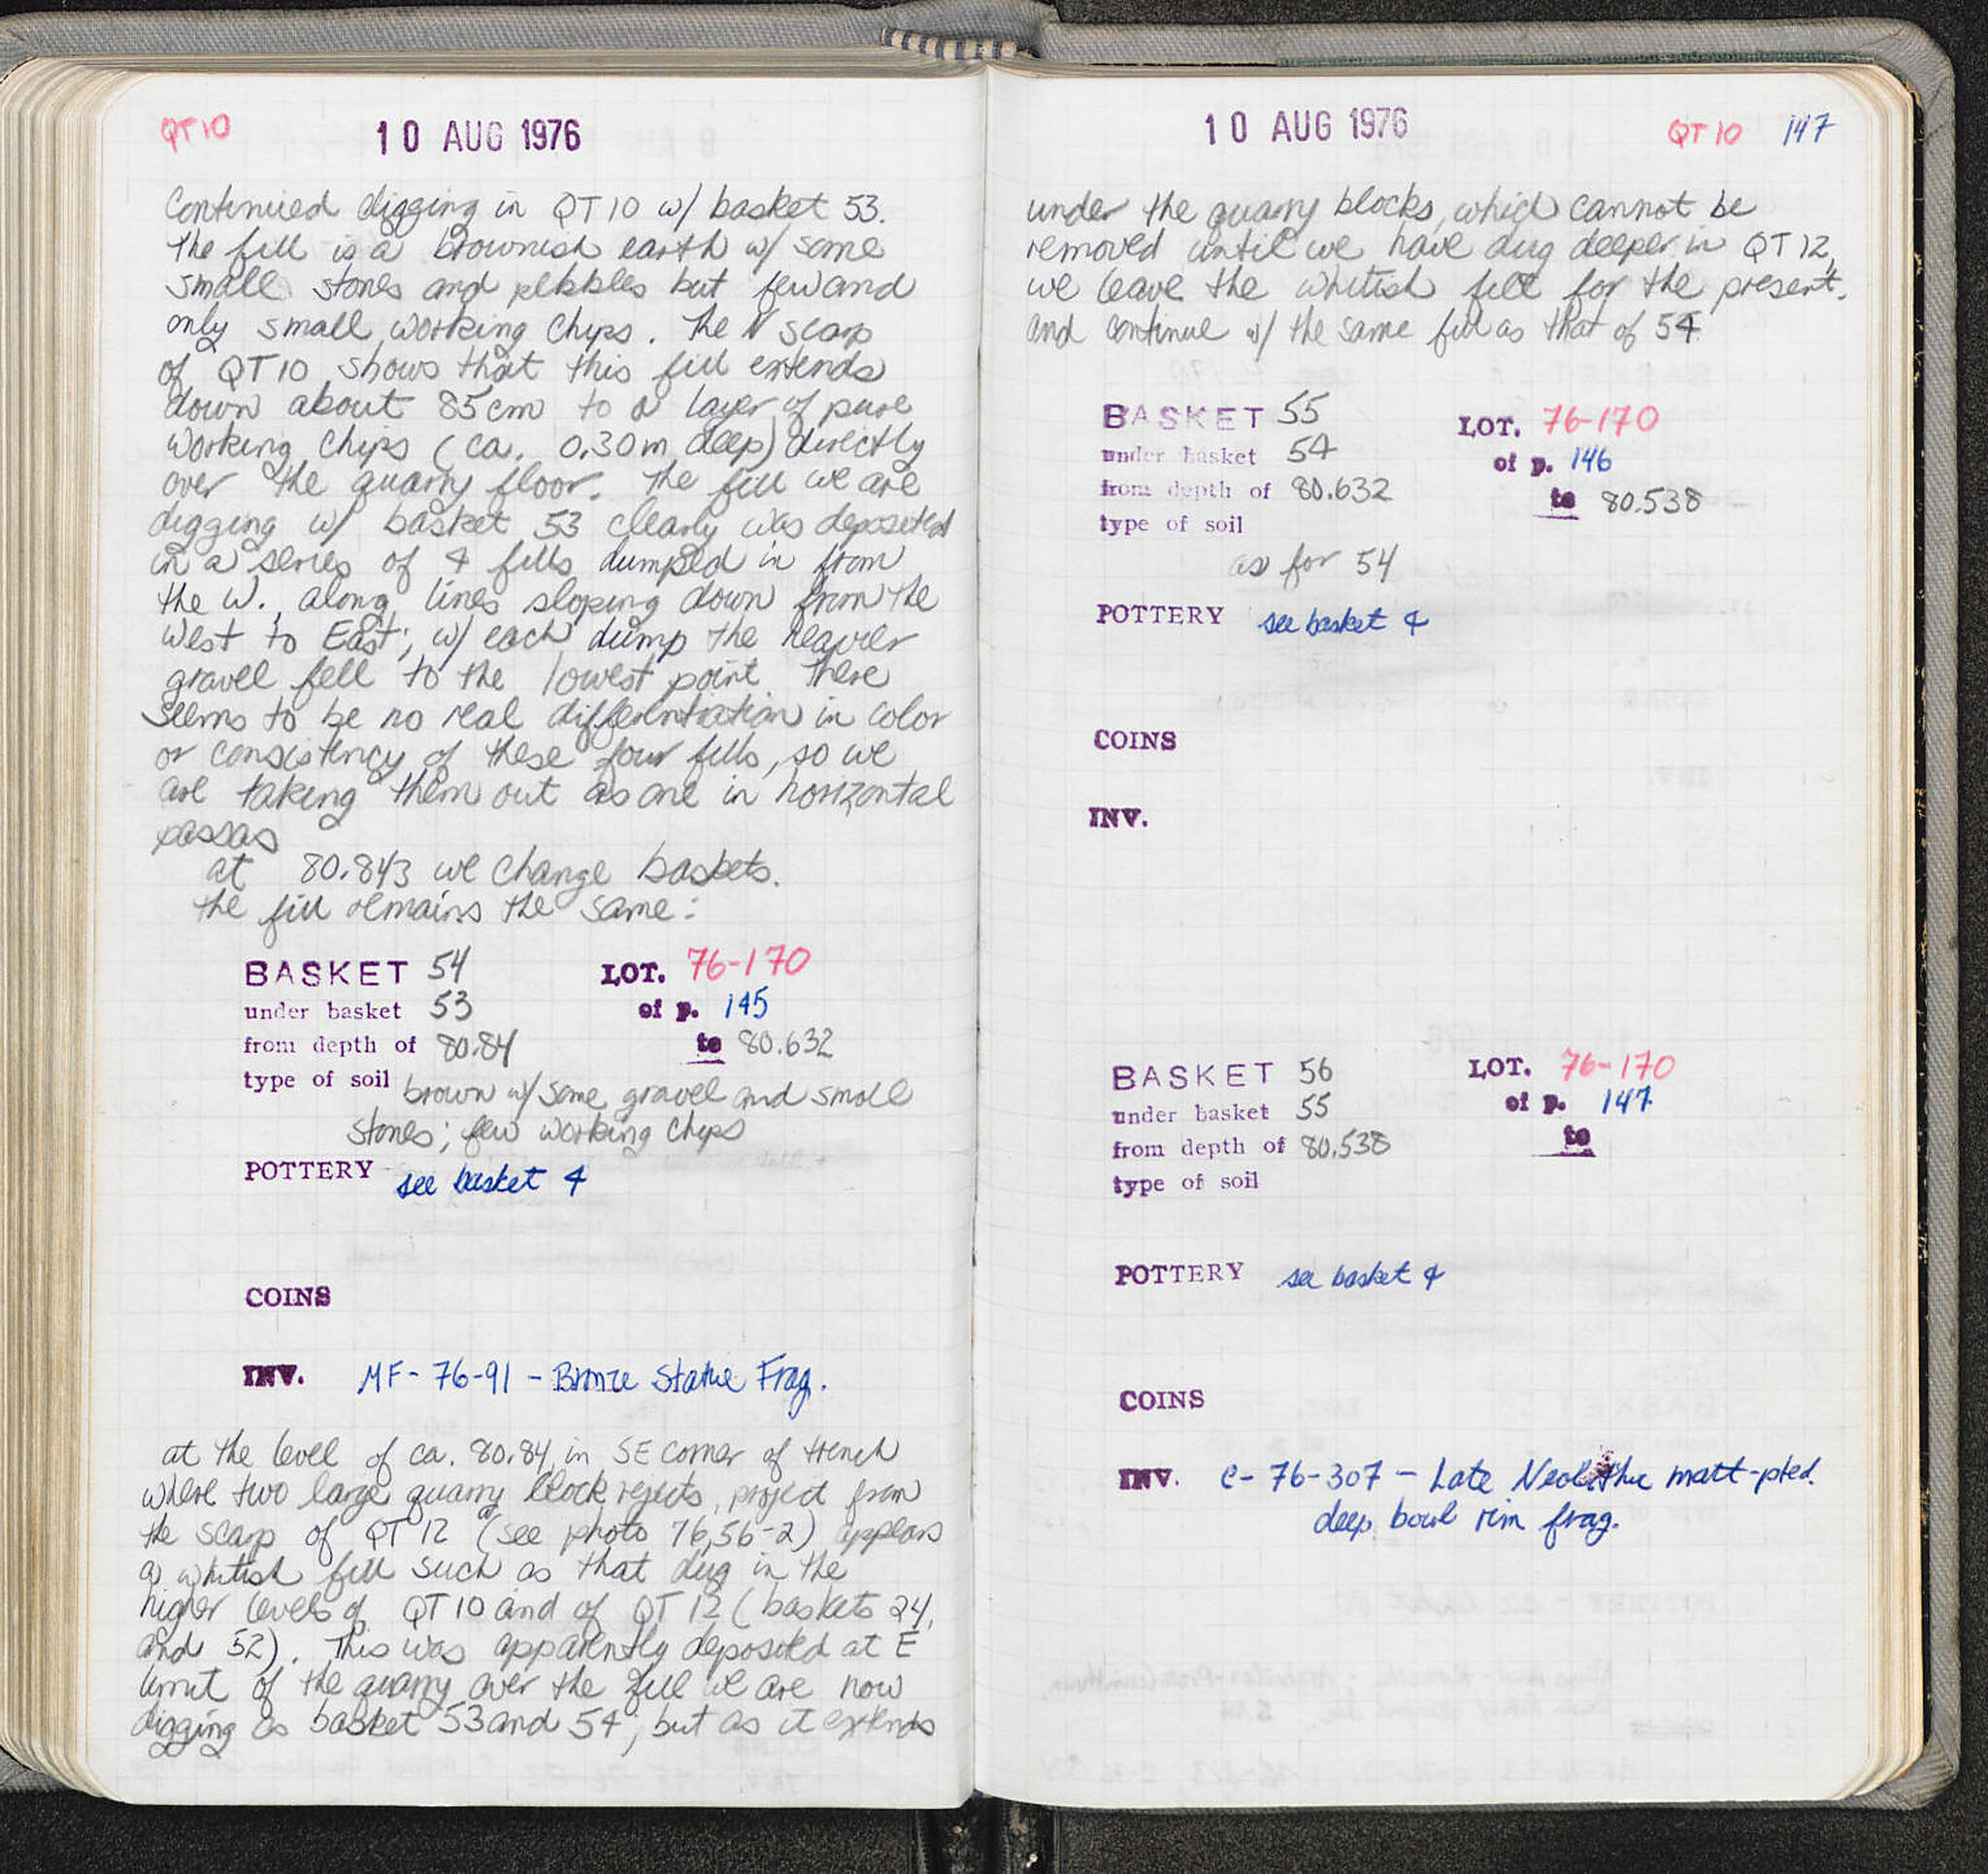 QT 10
10 AUG 1976
Continued digging in QT 10 w/ basket 53.
The fill is a brownish earth w/ some
small stones and pebbles but few and
only small working chips. The N scarp
of QT 10 shows that this fill extends
down about 85cm to a layer of pure
working chips (ca. 0.30m deep) directly
over the quarry floor. The fill we are
digging w/ basket 53 clearly was deposited
in a series of 4 fills dumped in from
the W., along lines sloping down from the
West to East; w/ each dump the heavier
gravel fell to the lowest point. There
seems to be no real differentiation in color
or consistency of these four fills, so we
are taking them out as one in horizontal
passas
at 80.843 we change baskets.
the fill remains the same:
BASKET 54 LOT. 76-170
under basket 53 of p. 145
from depth of 80.84 to 80.632
type of soil brown w/ some gravel and small
stones; few working chips
POTTERY see basket 4
COINS
INV. MF-76-91 - Bronze Statue Frag.
at the level of ca. 80.84, in SE corner of trench
where two large quarry block rejects, project from
the scarp of QT 12 (see photo 76,56-2) appears
a whitish fill such as that dug in the
higher levels of QT 10 and of QT 12 (baskets 24,
and 52). This was apparently deposited at E
limit of the quarry over the fill we are now
digging as basket 53 and 54, but as it extends
10 AUG 1976
QT 10 147
under the quarry blocks, which cannot be
removed until we have dug deeper in QT 12,
we leave the whitish fill for the present.
and continue w/ the same fill as that of 54
BASKET 55 LOT. 76-170
under basket 54 of p. 146
from depth of 80.632 to 80.538
type of soil
as for 54
POTTERY see basket 4
COINS
INV.
BASKET 56 LOT. 76-170
under basket 55 of p. 147
from depth of 80.538 to
type of soil
POTTERY see basket 4
COINS
INV. C-76-307 - Late Neolithic matt-pted.
deep bowl rim frag.